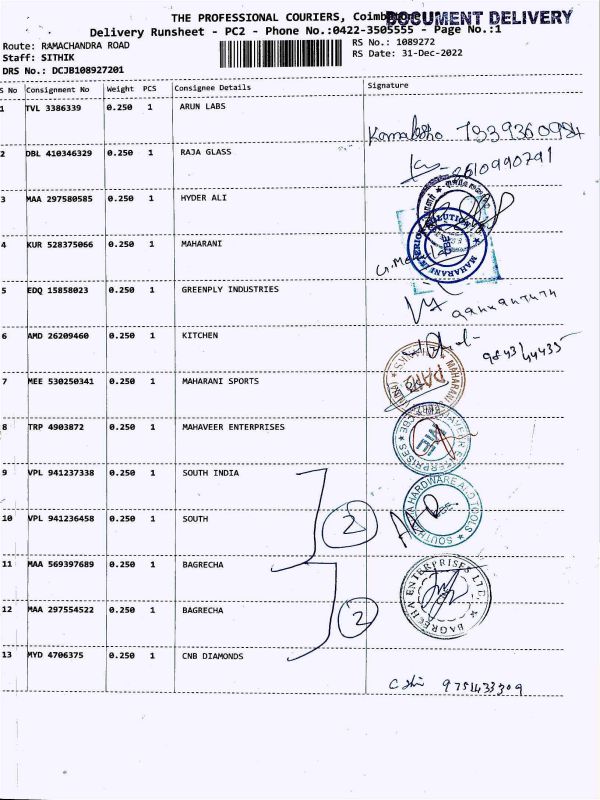 THE PROFESSIONAL COURIERS, Coimbatore
DOCUMENT DELIVERY
Delivery Runsheet - PC2 - Phone No.:0422-3505555 - Page No.:1
Route: RAMACHANDRA ROAD RS No.: 1089272
Staff: SITHIK RS Date: 31-Dec-2022
DRS No.: DCJB108927201
S No Consignment No Weight PCS Consignee Details Signature
1 TVL 3386339 0.250 1 ARUN LABS
2 DBL 410346329 0.250 1 RAJA GLASS
3 MAA 297580585 0.250 1 HYDER ALI
4 KUR 528375066 0.250 1 MAHARANI
5 EDQ 15858023 0.250 1 GREENPLY INDUSTRIES
6 AMD 26209460 0.250 1 KITCHEN
7 MEE 530250341 0.250 1 MAHARANI SPORTS
8 TRP 4903872 0.250 1 MAHAVEER ENTERPRISES
9 VPL 941237338 0.250 1 SOUTH INDIA
10 VPL 941236458 0.250 1 SOUTH
2
11 MAA 569397689 0.250 1 BAGRECHA
12 MAA 297554522 0.250 1 BAGRECHA
2
BAGRECHA ENTERPRISES LTD.
13 MYD 4706375 0.250 1 CNB DIAMONDS
9751433309